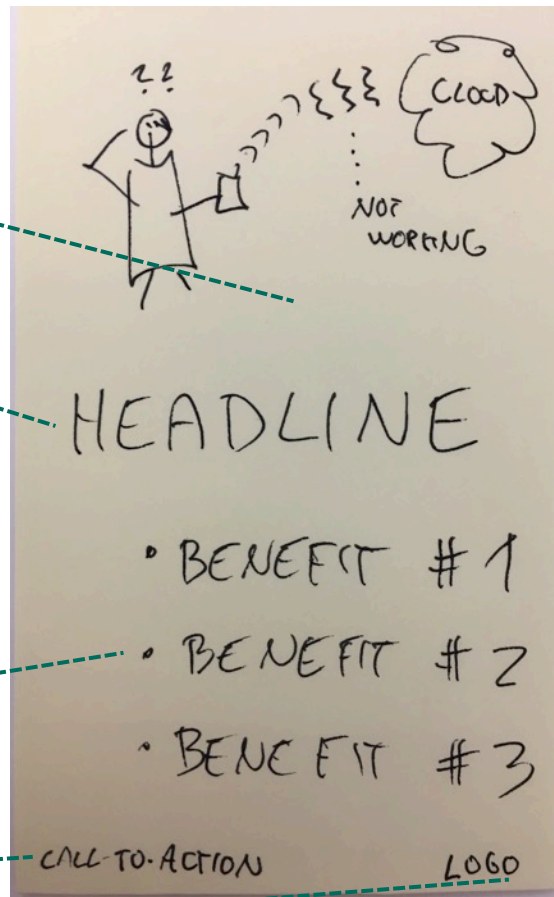 ??
CLOUD
NOT
WORKING
HEADLINE
• BENEFIT #1
• BENEFIT #2
• BENEFIT #3
CALL-TO-ACTION LOGO